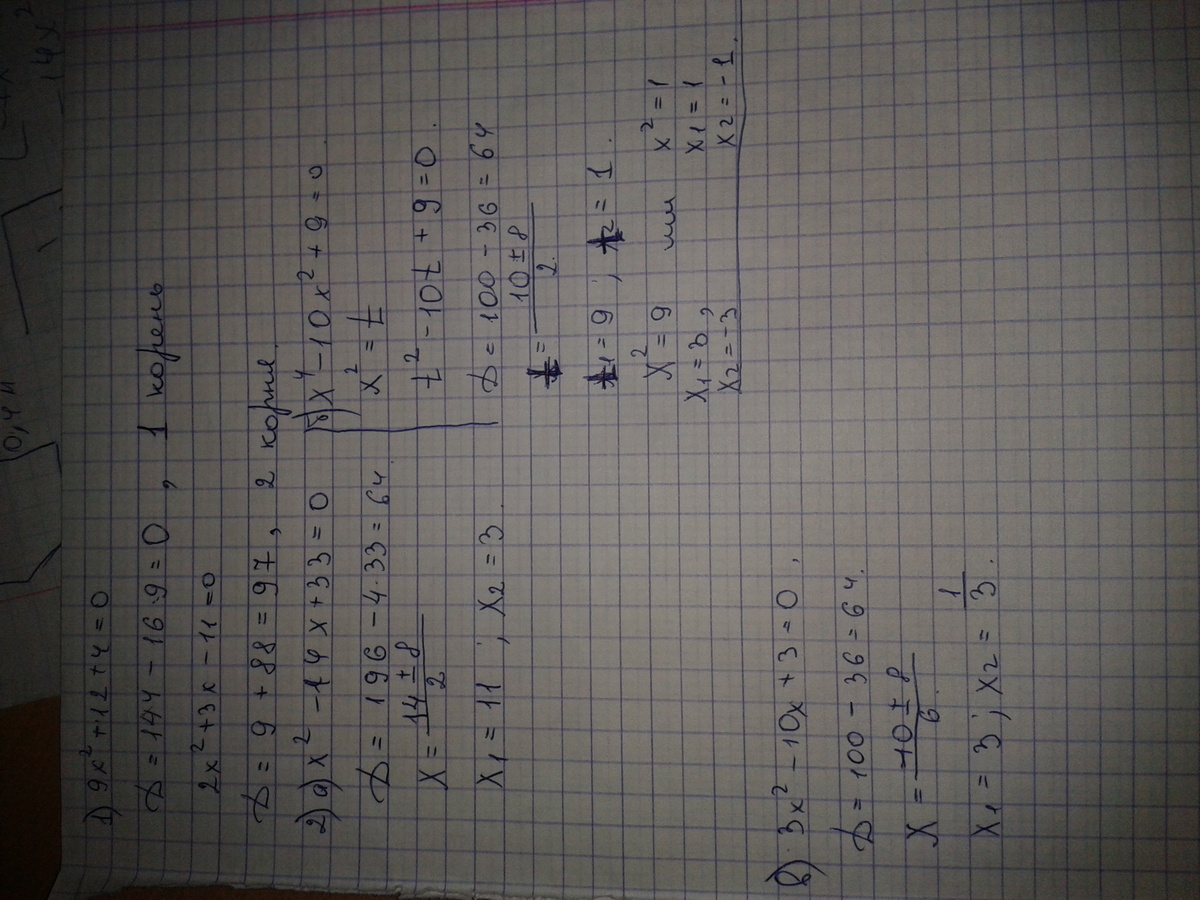 1) 9x²+12+4=0
D=144-16·9=0, 1 корень
2x²+3x-11=0
D=9+88=97, 2 корня.
2) a) x²-14x+33=0
D=196-4·33=64.
x=14±8/2
x1=11; x2=3.
б) x⁴-10x²+9=0.
x²=t
t²-10t+9=0.
D=100-36=64
t=10±8/2.
t1=9; t2=1.
x²=9 или x²=1
x1=3, x1=1
x2=-3 x2=-1.
в) 3x²-10x+3=0,
D=100-36=64.
x=10±8/6.
x1=3; x2=1/3.
0,4 н